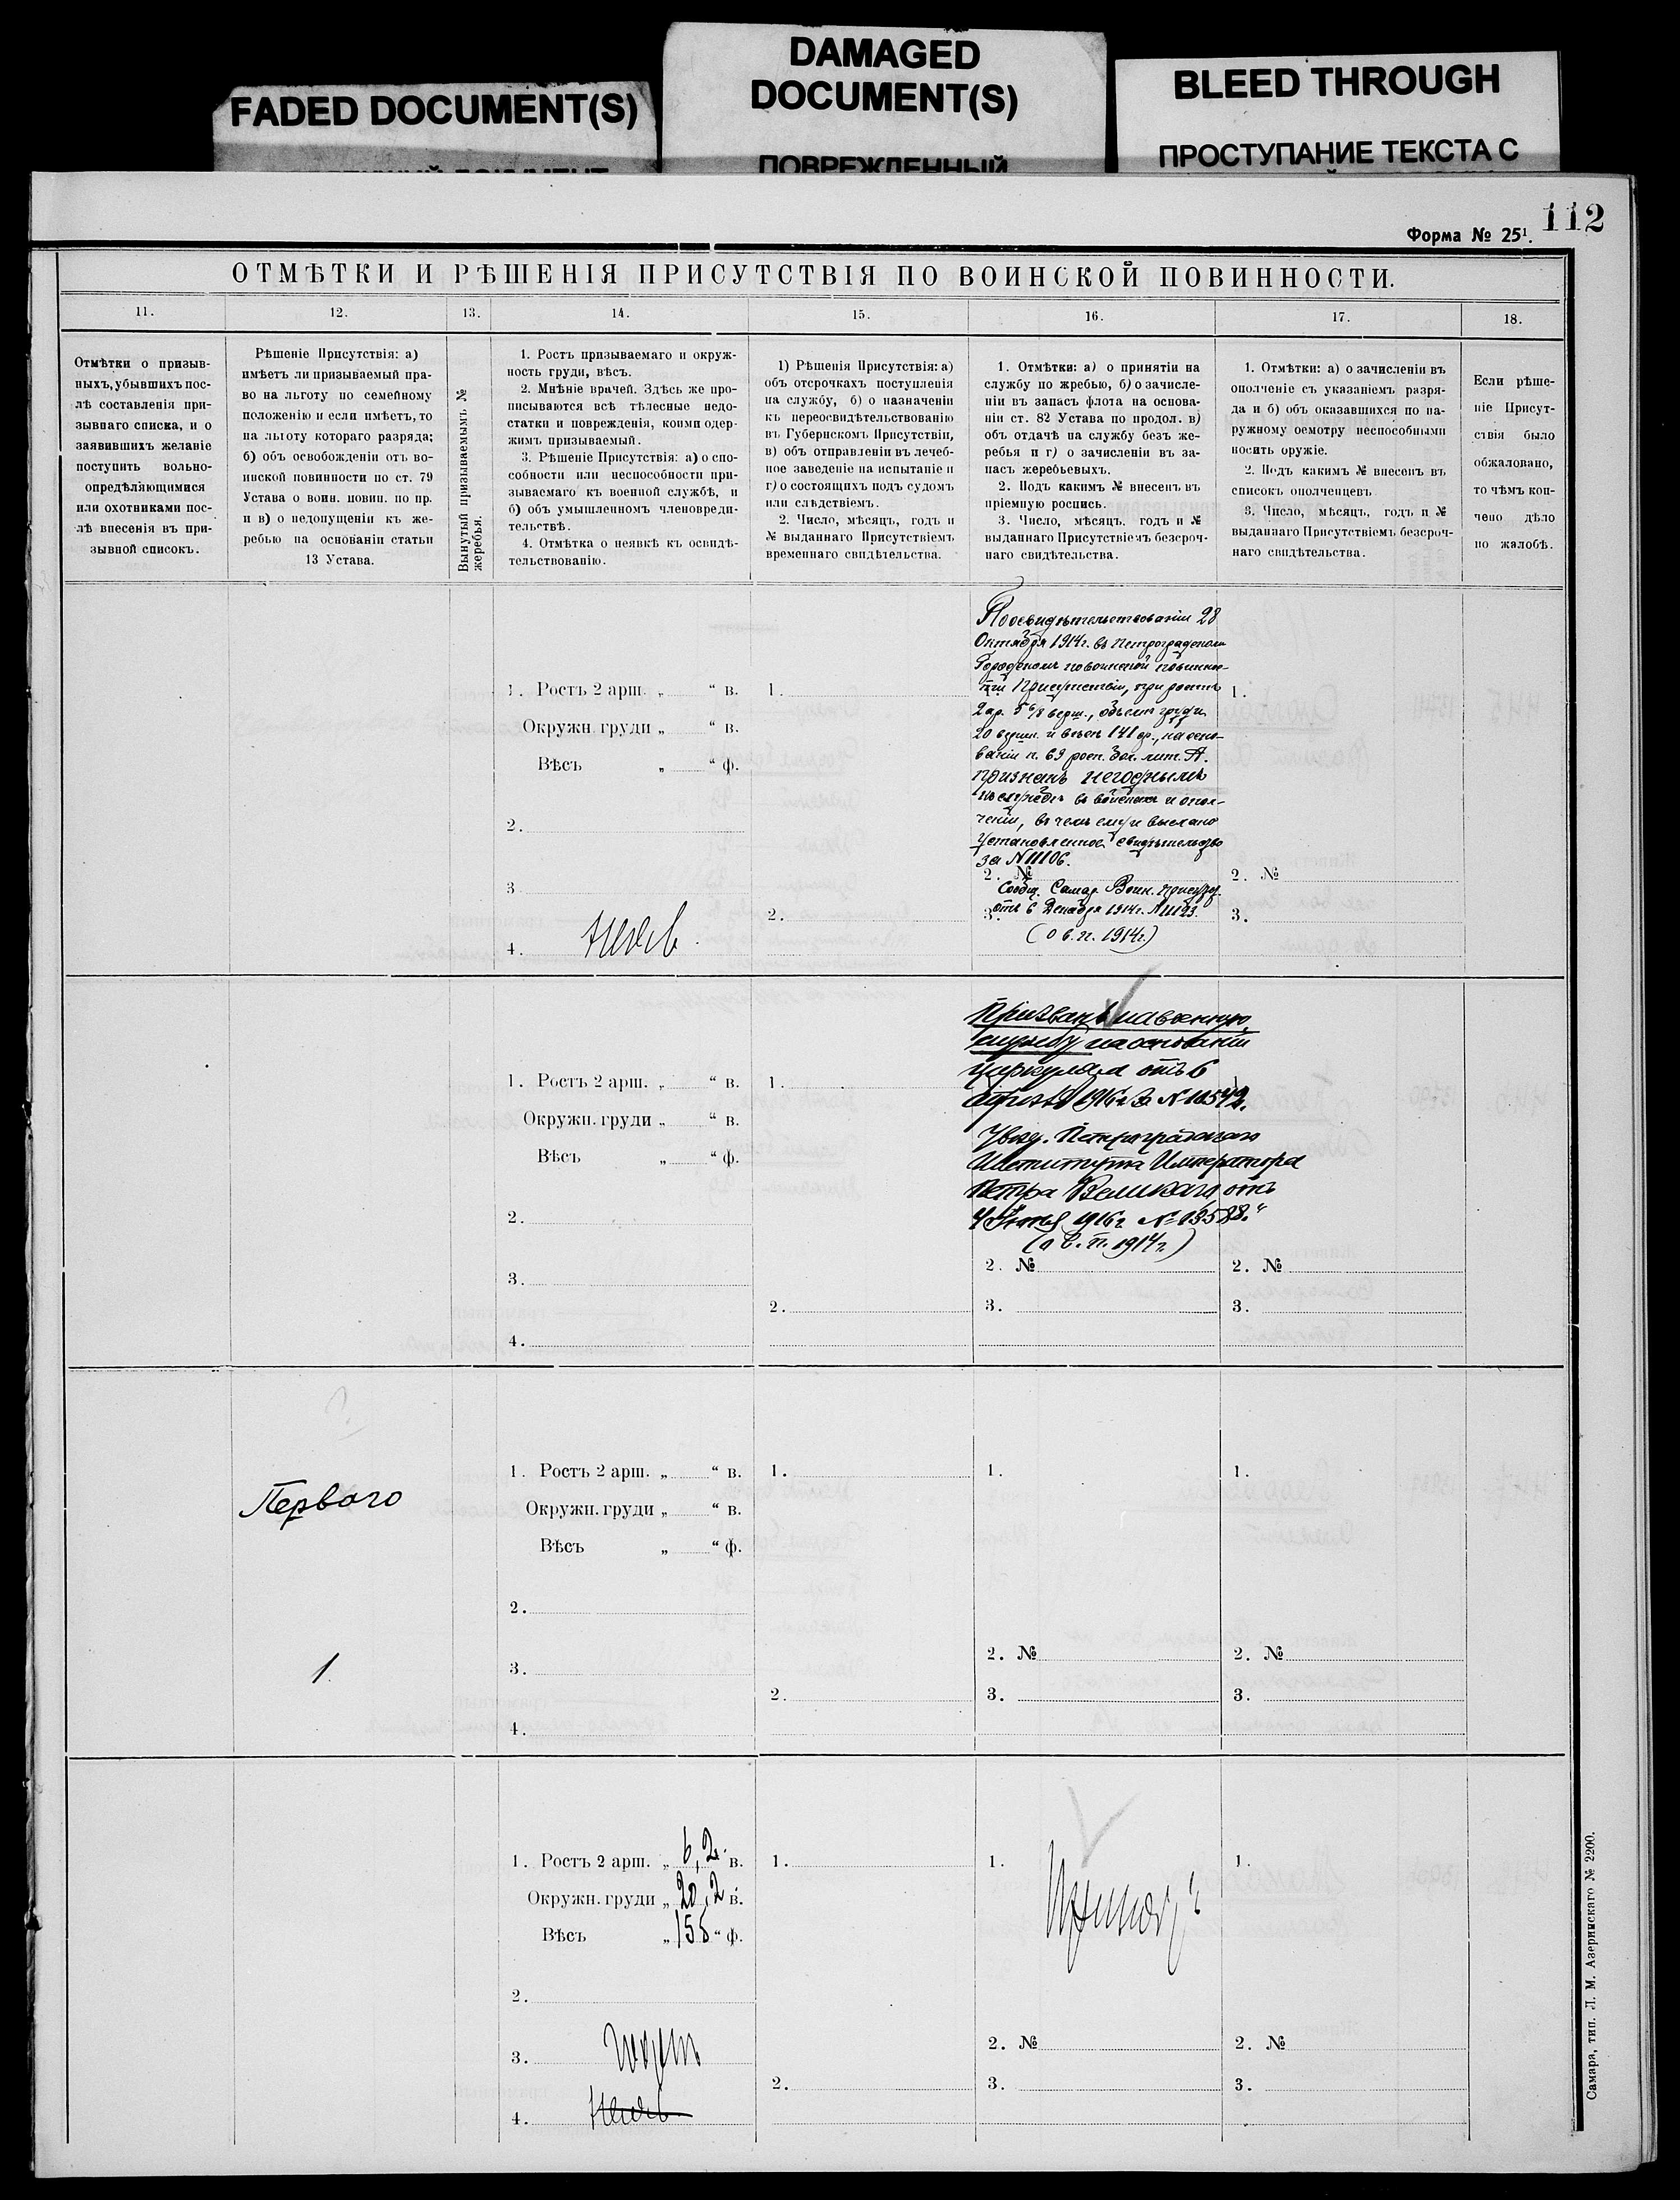 FADED DOCUMENT(S)
DAMAGED
DOCUMENT(S)
ПОВРЕЖДЕННЫЙ
BLEED THROUGH
ПРОСТУПАНИЕ ТЕКСТА С
112
Форма № 25¹.
ОТМѢТКИ И РѢШЕНІЯ ПРИСУТСТВІЯ ПО ВОИНСКОЙ ПОВИННОСТИ.
11.
12.
13.
14.
15.
16.
17.
18.
Отмѣтки о призыв-
ныхъ, убывшихъ пос-
лѣ составленія при-
зывнаго списка, и о
заявившихъ желаніе
поступить вольно-
опредѣляющимися
или охотниками пос-
лѣ внесенія въ при-
зывной списокъ.
Рѣшеніе Присутствія: а)
имѣетъ ли призываемый пра-
во на льготу по семейному
положенію и если имѣетъ, то
на льготу котораго разряда;
б) объ освобожденіи отъ во-
инской повинности по ст. 79
Устава о воин. повин. по пр.
и в) о недопущеніи къ же-
ребью на основаніи статьи
13 Устава.
Вынутый призываемымъ №
жеребья.
1. Ростъ призываемаго и окруж-
ность груди, вѣсъ.
2. Мнѣніе врачей. Здѣсь же про-
писываются всѣ тѣлесные недо-
статки и поврежденія, коими одер-
жимъ призываемый.
3. Рѣшеніе Присутствія: а) о спо-
собности или неспособности при-
зываемаго къ военной службѣ, и
б) объ умышленномъ членовреди-
тельствѣ.
4. Отмѣтка о неявкѣ къ освидѣ-
тельствованію.
1) Рѣшенія Присутствія: а)
объ отсрочкахъ поступленія
на службу, б) о назначеніи
къ переосвидѣтельствованію
въ Губернскомъ Присутствіи,
в) объ отправленіи въ лечеб-
ное заведеніе на испытаніе и
г) о состоящихъ подъ судомъ
или слѣдствіемъ.
2. Число, мѣсяцъ, годъ и
№ выданнаго Присутствіемъ
временнаго свидѣтельства.
1. Отмѣтки: а) о принятіи на
службу по жребью, б) о зачисле-
ніи въ запасъ флота на основа-
ніи ст. 82 Устава по продол. в)
объ отдачѣ на службу безъ же-
ребья и г) о зачисленіи въ за-
пасъ жеребьевыхъ.
2. Подъ какимъ № внесенъ въ
пріемную роспись.
3. Число, мѣсяцъ. годъ и №
выданнаго Присутствіемъ безсроч-
наго свидѣтельства.
1. Отмѣтки: а) о зачисленіи въ
ополченіе съ указаніемъ разря-
да и б) объ оказавшихся по на-
ружному осмотру неспособными
носить оружіе.
2. Подъ какимъ № внесенъ въ
списокъ ополченцевъ.
3. Число, мѣсяцъ, годъ и №
выданнаго Присутствіемъ безсроч-
наго свидѣтельства.
Если рѣше-
ніе Присут-
ствія было
обжаловано,
то чѣмъ кон-
чено дѣло
по жалобѣ.
1. Ростъ 2 арш. „ “ в.
Окружн. груди „ “ в.
Вѣсъ „ “ ф.
2.
3
4. Неяв.
1.
2.
По освидѣтельствованіи 28
Октября 1914 г. въ Петроградскомъ
Городскомъ по воинской повинно-
сти Присутствіи, при ростѣ
2 ар. 5 6/8 верш., объемѣ груди
20 верш. и вѣсѣ 141 ф., на осно-
ваніи п. 69 росп. бол. лит. А.
признанъ негоднымъ
къ службѣ въ войскахъ и опол-
ченіи, въ чемъ ему и выслано
установленное свидѣтельство
за № 11106.
2. №
Сообщ. Самар. Воин. Присут.
3. отъ 6 Декабря 1914 г. № 11123.
(о в. п. 1914 г.)
1.
2. №
3.
1. Ростъ 2 арш. „ “ в.
Окружн. груди „ “ в.
Вѣсъ „ “ ф.
2.
3.
4.
1.
2.
Призванъ на военную
службу на основаніи
циркуляра отъ 6
Апрѣля 1916 г. за № 10542.
Увед. Петроградскаго
Института Императора
Петра Великаго, отъ
1916 г. № 13588."
(о в. п. 1914 г.)
2. №
3.
1.
2. №
3.
Перваго
1
1. Ростъ 2 арш. „ “ в.
Окружн. груди „ “ в.
Вѣсъ „ “ ф.
2.
3.
4.
1.
2.
1.
2. №
3.
1.
2. №
3.
1. Ростъ 2 арш. „ 6,2 в.
Окружн. груди „ 20,2 в.
Вѣсъ „ 155 “ ф.
2.
3. Годенъ
4. Неяв.
1.
2.
1.
2. №
3.
1.
2. №
3.
Самара, тип. Л. М. Азеринскаго № 2200.